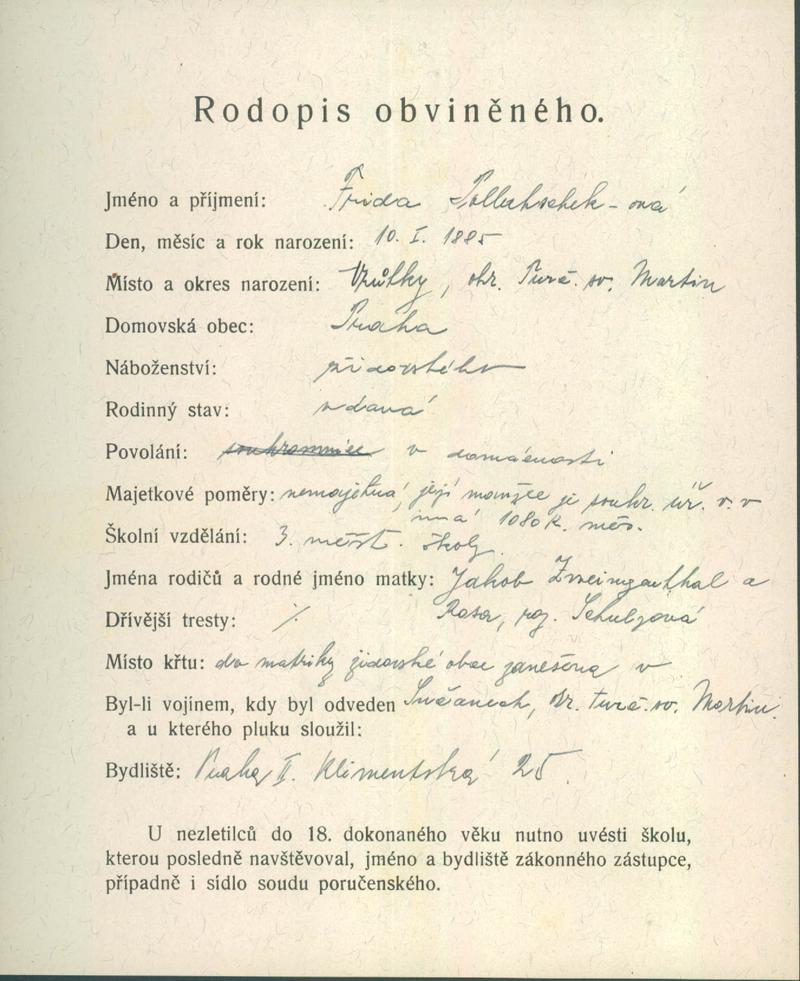 Rodopis obviněného.
Jméno a příjmení: Frida Pollatschek-ová
Den, měsíc a rok narození: 10. I. 1885
Místo a okres narození: Vrútky, okr. Turč. sv. Martin
Domovská obec: Praha
Náboženství: židovského
Rodinný stav: vdaná
Povolání: soukromnice v domácnosti
Majetkové poměry: nemajetná, její manžel je soukr. úř. v. v
má 1080 K. měs.
Školní vzdělání: 3. měšť. školy
Jména rodičů a rodné jméno matky: Jakob Zweingenthal a
Dřívější tresty: ⁒ Rosa, roz. Schulzová
Místo křtu: do matriky židovské obce zanešena v
Byl-li vojínem, kdy byl odveden Sučanech, okr. turč. sv. Martin.
a u kterého pluku sloužil:
Bydliště: Praha II. Klimentská 25.
U nezletilců do 18. dokonaného věku nutno uvésti školu,
kterou posledně navštěvoval, jméno a bydliště zákonného zástupce,
případně i sídlo soudu poručenského.